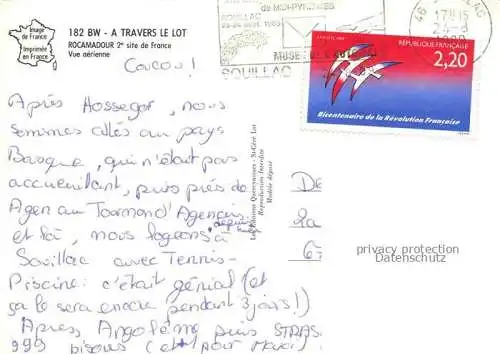 Image
de France
Imprimée
en France
182 BW - A TRAVERS LE LOT
ROCAMADOUR 2e site de France
Vue aérienne
de MIDI-PYRENEES
SOUILLAC
SOUILLAC
46
17H15
RÉPUBLIQUE FRANÇAISE
2,20
Bicentenaire de la Révolution Française
Coucou!
Après Hossegor, nous
sommes allés au pays
Basque, qui n'était pas
accueillant, puis près de
Agen au Tournond d'Agenais
et là, nous logeons à
depuis
Souillac avec Tennis-
Piscine: c'était génial (et
ça le sera encore pendant 3 jours!)
Après, Angoulême puis STRAS
999 bisous (et pour Mavei
Les Editions Quercynoises - St-Céré Lot
Reproduction Interdite
Modèle déposé
privacy protection
Datenschutz